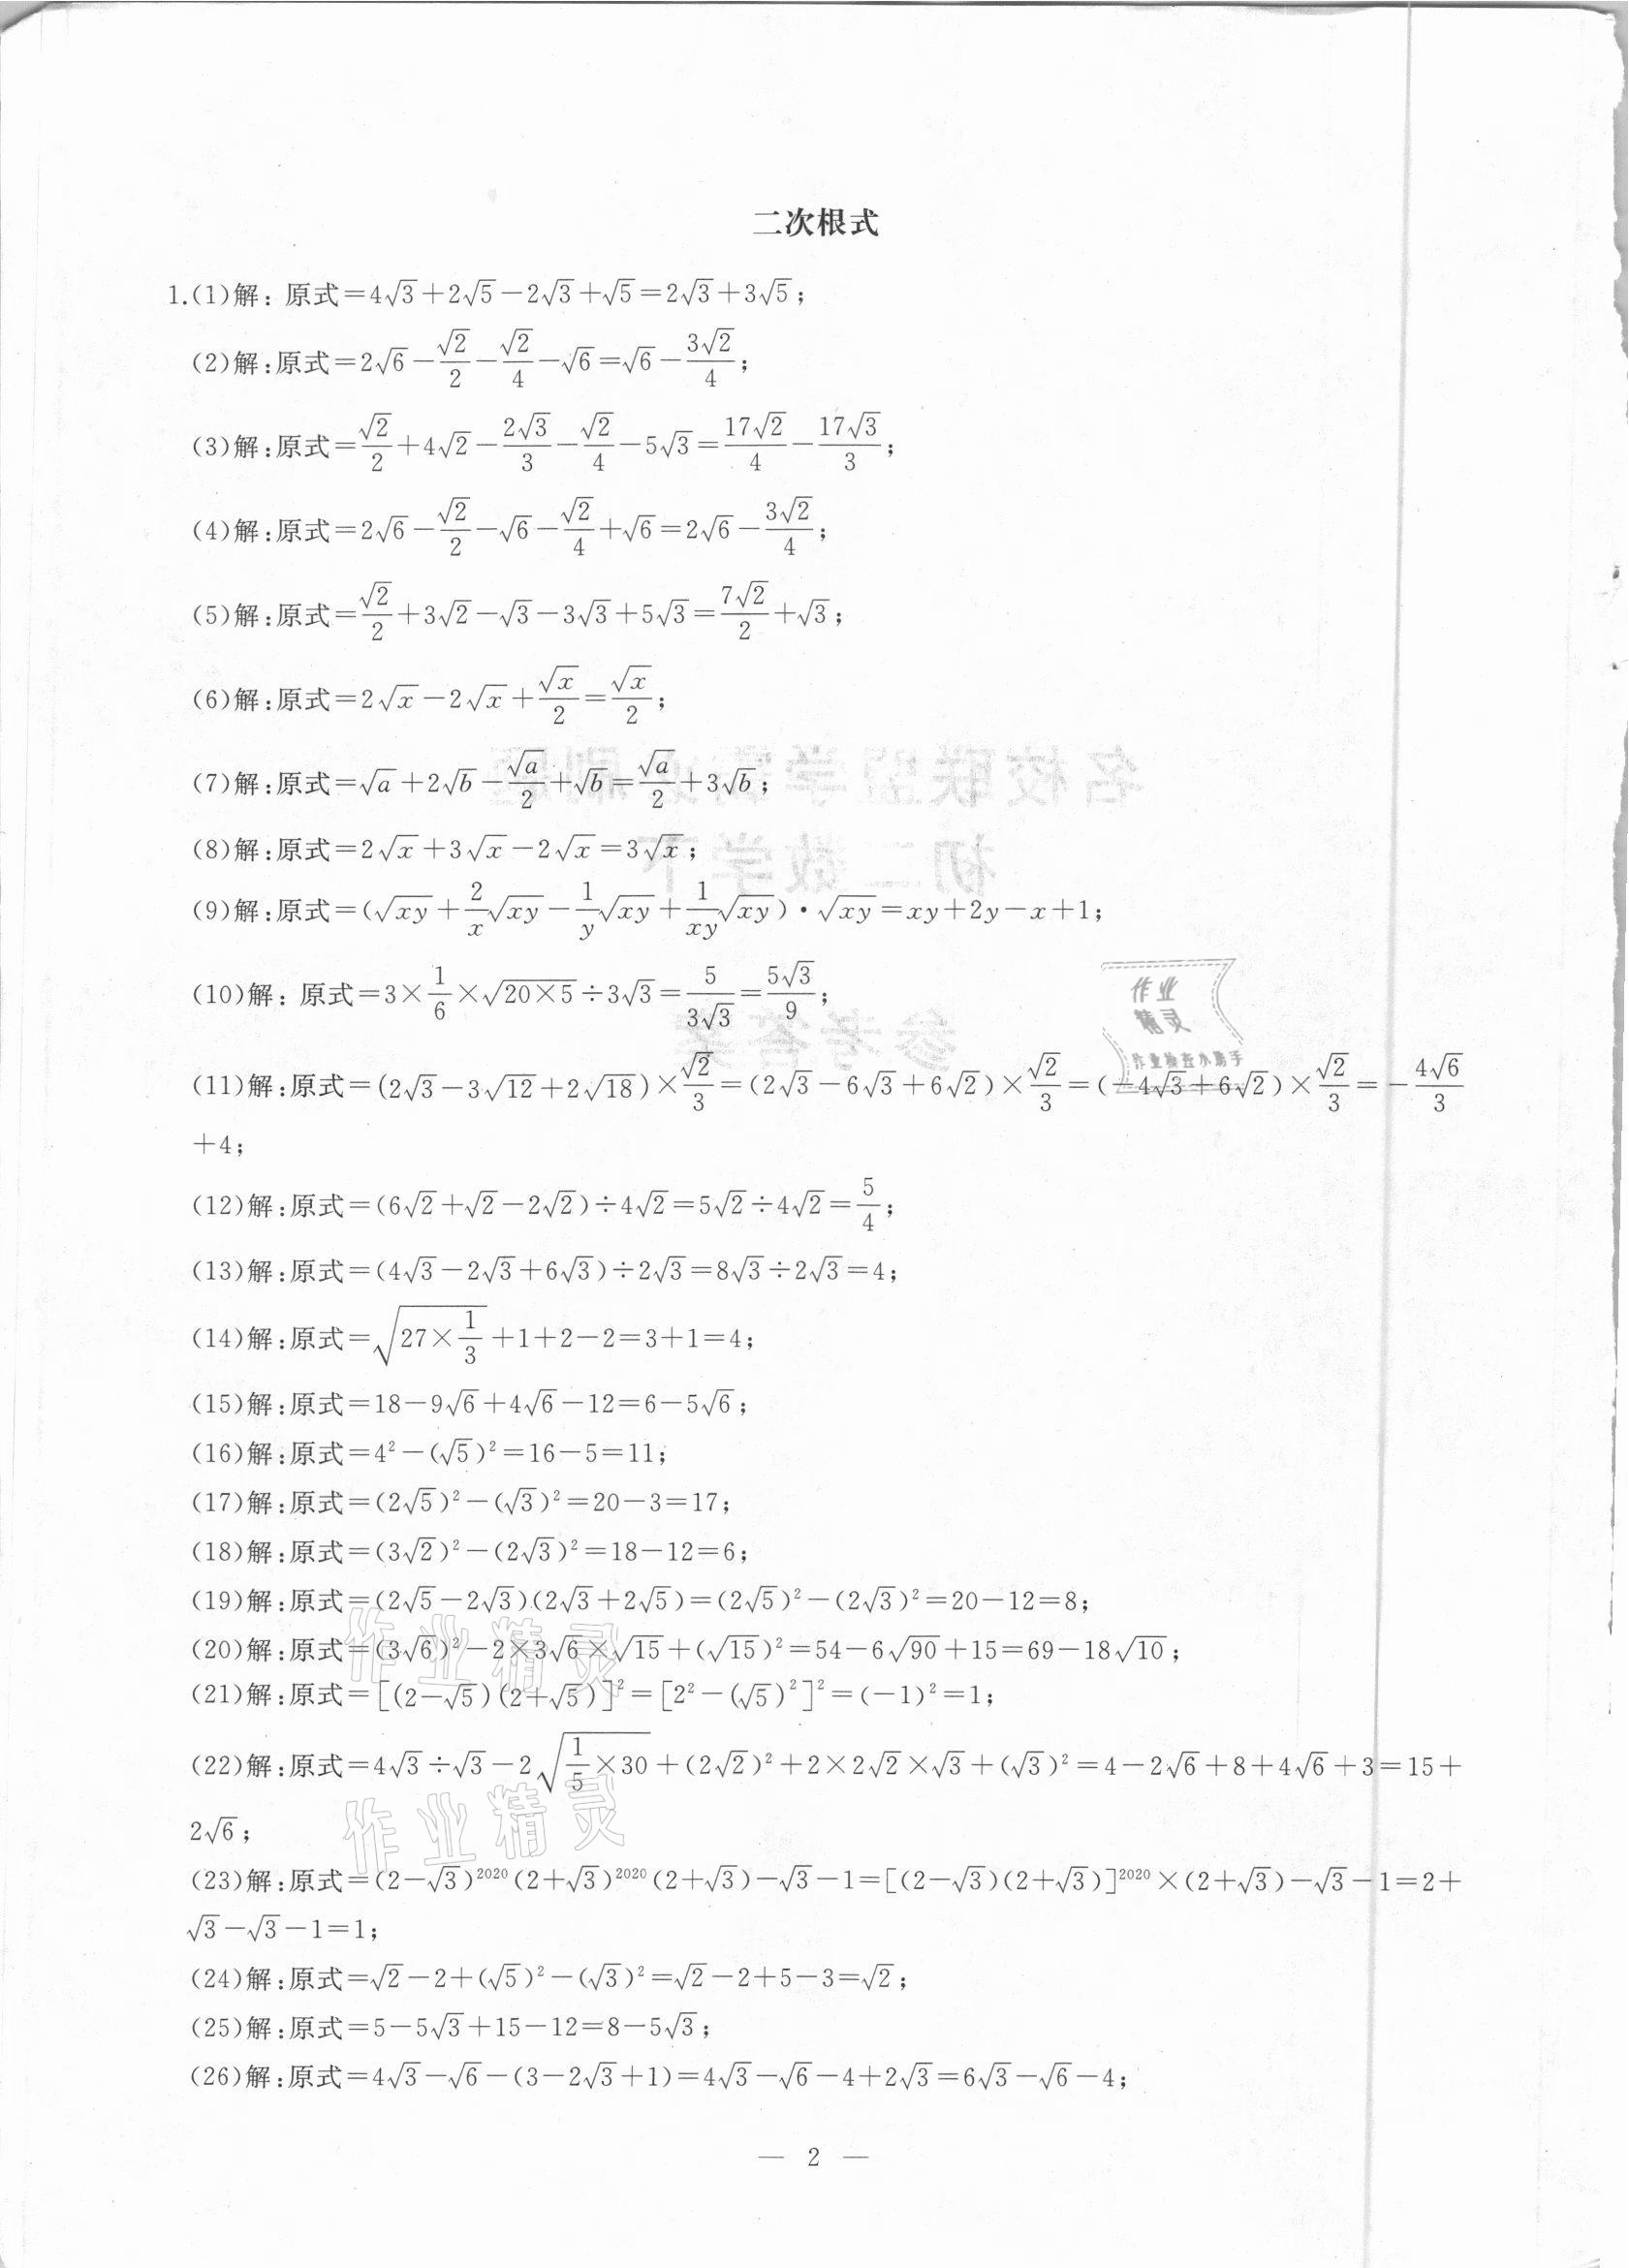 二次根式
1.(1)解: 原式=4√3+2√5-2√3+√5=2√3+3√5;
(2)解:原式=2√6-√2/2-√2/4-√6=√6-3√2/4;
(3)解:原式=√2/2+4√2-2√3/3-√2/4-5√3=17√2/4-17√3/3;
(4)解:原式=2√6-√2/2-√6-√2/4+√6=2√6-3√2/4;
(5)解:原式=√2/2+3√2-√3-3√3+5√3=7√2/2+√3;
(6)解:原式=2√x-2√x+√x/2=√x/2;
(7)解:原式=√a+2√b-√a/2+√b=√a/2+3√b;
(8)解:原式=2√x+3√x-2√x=3√x;
(9)解:原式=(√(xy)+2/x√(xy)-1/y√(xy)+1/(xy)√(xy))·√(xy)=xy+2y-x+1;
(10)解: 原式=3×1/6×√(20×5)÷3√3=5/(3√3)=5√3/9;
(11)解:原式=(2√3-3√12+2√18)×√2/3=(2√3-6√3+6√2)×√2/3=(-4√3+6√2)×√2/3=-4√6/3
+4;
(12)解:原式=(6√2+√2-2√2)÷4√2=5√2÷4√2=5/4;
(13)解:原式=(4√3-2√3+6√3)÷2√3=8√3÷2√3=4;
(14)解:原式=√(27×1/3)+1+2-2=3+1=4;
(15)解:原式=18-9√6+4√6-12=6-5√6;
(16)解:原式=4²-(√5)²=16-5=11;
(17)解:原式=(2√5)²-(√3)²=20-3=17;
(18)解:原式=(3√2)²-(2√3)²=18-12=6;
(19)解:原式=(2√5-2√3)(2√3+2√5)=(2√5)²-(2√3)²=20-12=8;
(20)解:原式=(3√6)²-2×3√6×√15+(√15)²=54-6√90+15=69-18√10;
(21)解:原式=[(2-√5)(2+√5)]²=[2²-(√5)²]²=(-1)²=1;
(22)解:原式=4√3÷√3-2√(1/5×30)+(2√2)²+2×2√2×√3+(√3)²=4-2√6+8+4√6+3=15+
2√6;
(23)解:原式=(2-√3)²⁰²⁰(2+√3)²⁰²⁰(2+√3)-√3-1=[(2-√3)(2+√3)]²⁰²⁰×(2+√3)-√3-1=2+
√3-√3-1=1;
(24)解:原式=√2-2+(√5)²-(√3)²=√2-2+5-3=√2;
(25)解:原式=5-5√3+15-12=8-5√3;
(26)解:原式=4√3-√6-(3-2√3+1)=4√3-√6-4+2√3=6√3-√6-4;
— 2 —
作业
精灵
作业检查小助手
作业精灵
作业精灵